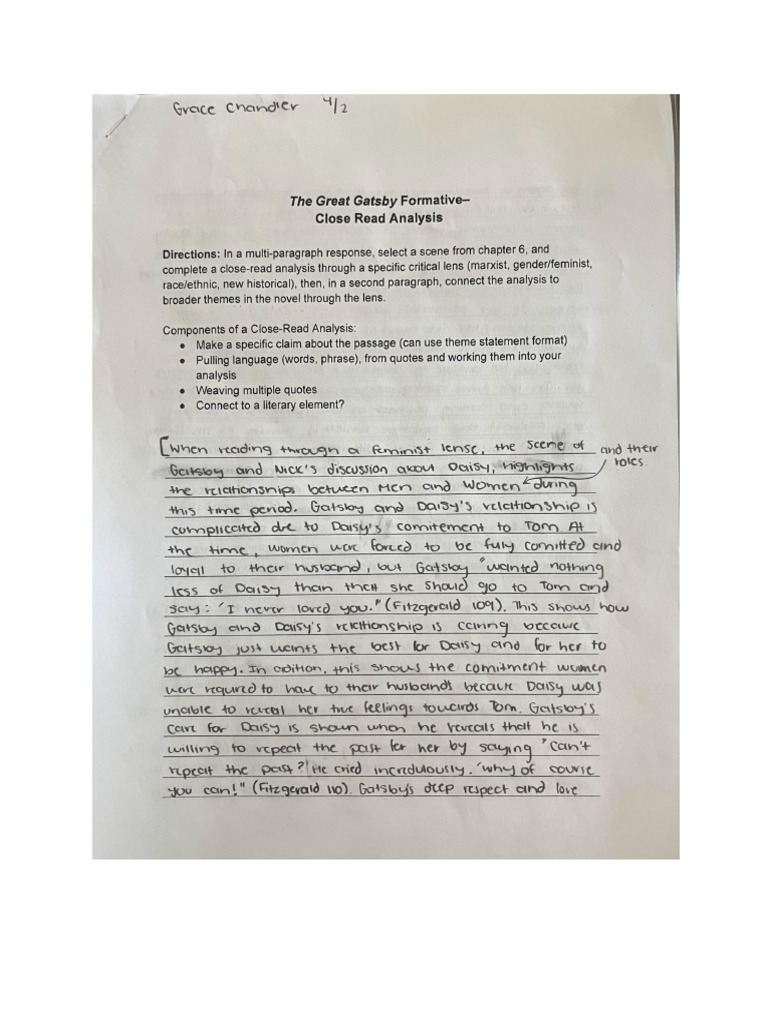 Grace Chandler 4/2
The Great Gatsby Formative–
Close Read Analysis
Directions: In a multi-paragraph response, select a scene from chapter 6, and
complete a close-read analysis through a specific critical lens (marxist, gender/feminist,
race/ethnic, new historical), then, in a second paragraph, connect the analysis to
broader themes in the novel through the lens.
Components of a Close-Read Analysis:
• Make a specific claim about the passage (can use theme statement format)
• Pulling language (words, phrase), from quotes and working them into your
analysis
• Weaving multiple quotes
• Connect to a literary element?
[When reading through a feminist lense, the scene of
Gatsby and Nick's discussion about Daisy, highlights
and their
roles.
the relationships between Men and Women during
this time period. Gatsby and Daisy's relationship is
complicated due to Daisy's comitement to Tom At
the time, women were forced to be fully comitted and
loyal to their husband, but Gatsby "wanted nothing
less of Daisy than that she should go to Tom and
say: 'I never loved you." (Fitzgerald 109). This shows how
Gatsby and Daisy's relationship is caring because
Gatsby just wants the best for Daisy and for her to
be happy. In adition, this shows the comitment women
were required to have to their husbands because Daisy was
unable to reveal her true feelings towards Tom. Gatsby's
care for Daisy is shown when he reveals that he is
willing to repeat the past for her by saying "can't
repeat the past?' He cried incredulously. 'why of course
you can!" (Fitzgerald 110). Gatsby's deep respect and love